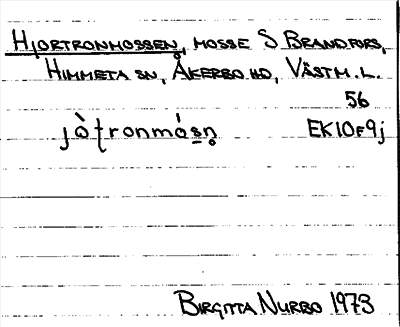 HJORTRONMOSSEN, MOSSE S BRANDFORS,
HIMMETA SN, ÅKERBO HD, VÄSTM. L.
56
jò̀tronmós̲n̥ EK10F9j
BIRGITTA NURBO 1973